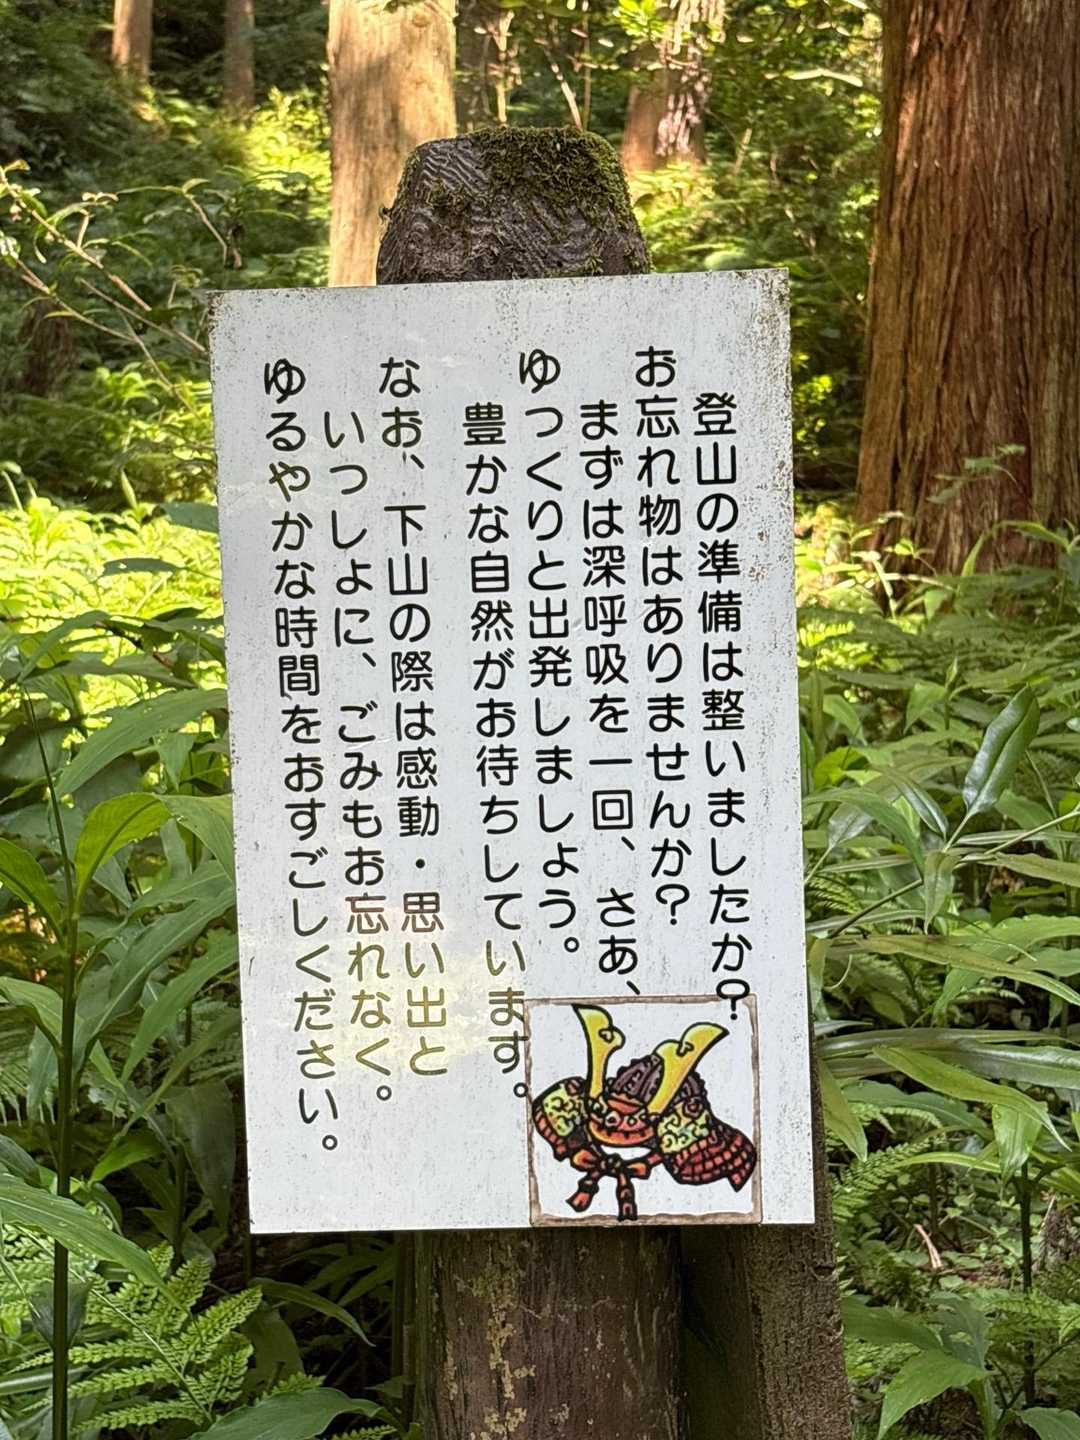 登山の準備は整いましたか？
お忘れ物はありませんか？
まずは深呼吸を一回、さあ、
ゆっくりと出発しましょう。
豊かな自然がお待ちしています。
なお、下山の際は感動・思い出と
いっしよに、ごみもお忘れなく。
ゆるやかな時間をおすごしください。